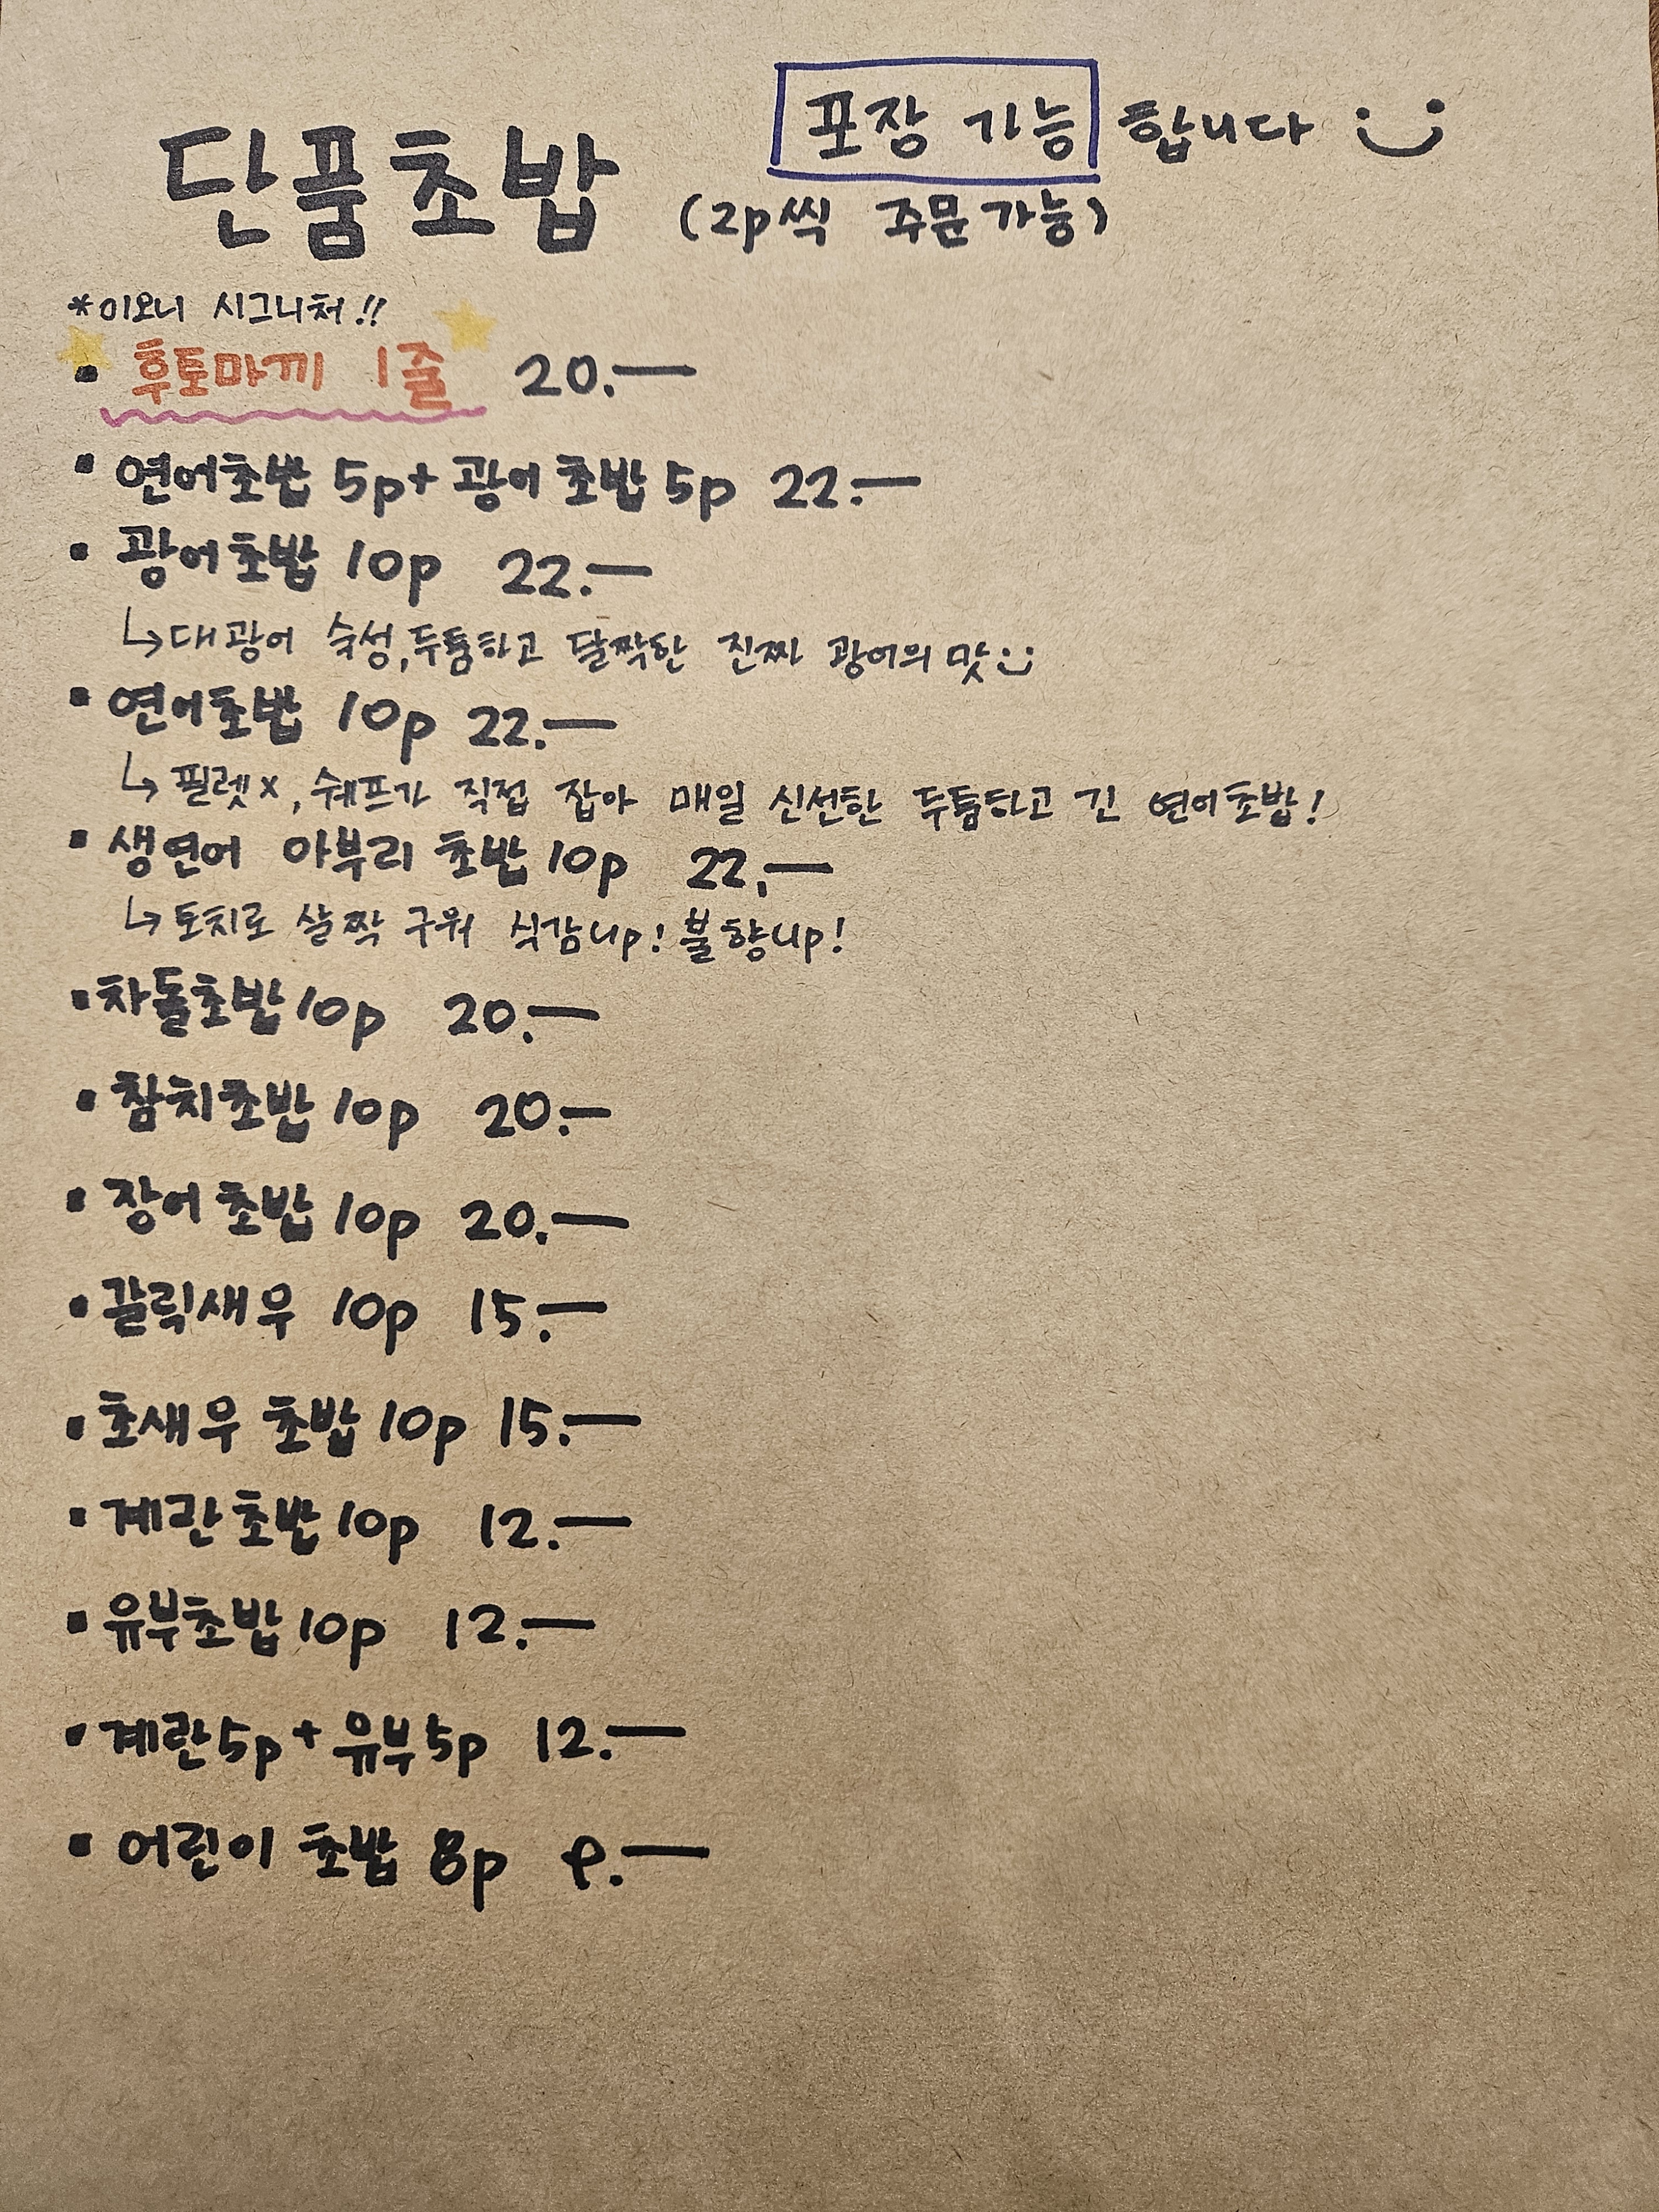 포장 가능 합니다
단품초밥 (2p씩 주문가능)
*이오니 시그니처!!
• 후토마끼 1줄 20.—
• 연어초밥 5p+ 광어초밥 5p 22.—
• 광어초밥 10p 22.—
↳대광어 숙성,두툼하고 달짝한 진짜 광어의 맛
• 연어초밥 10p 22.—
↳필렛x, 쉐프가 직접 잡아 매일 신선한 두툼하고 긴 연어초밥!
• 생연어 아부리 초밥 10p 22.—
↳토치로 살짝 구워 식감up! 불향up!
• 차돌초밥 10p 20.—
• 참치초밥 10p 20.—
• 장어초밥 10p 20.—
• 갈릭새우 10p 15.—
• 초새우 초밥 10p 15.—
• 계란초밥 10p 12.—
• 유부초밥 10p 12.—
• 계란5p+유부5p 12.—
• 어린이 초밥 8p 9.—